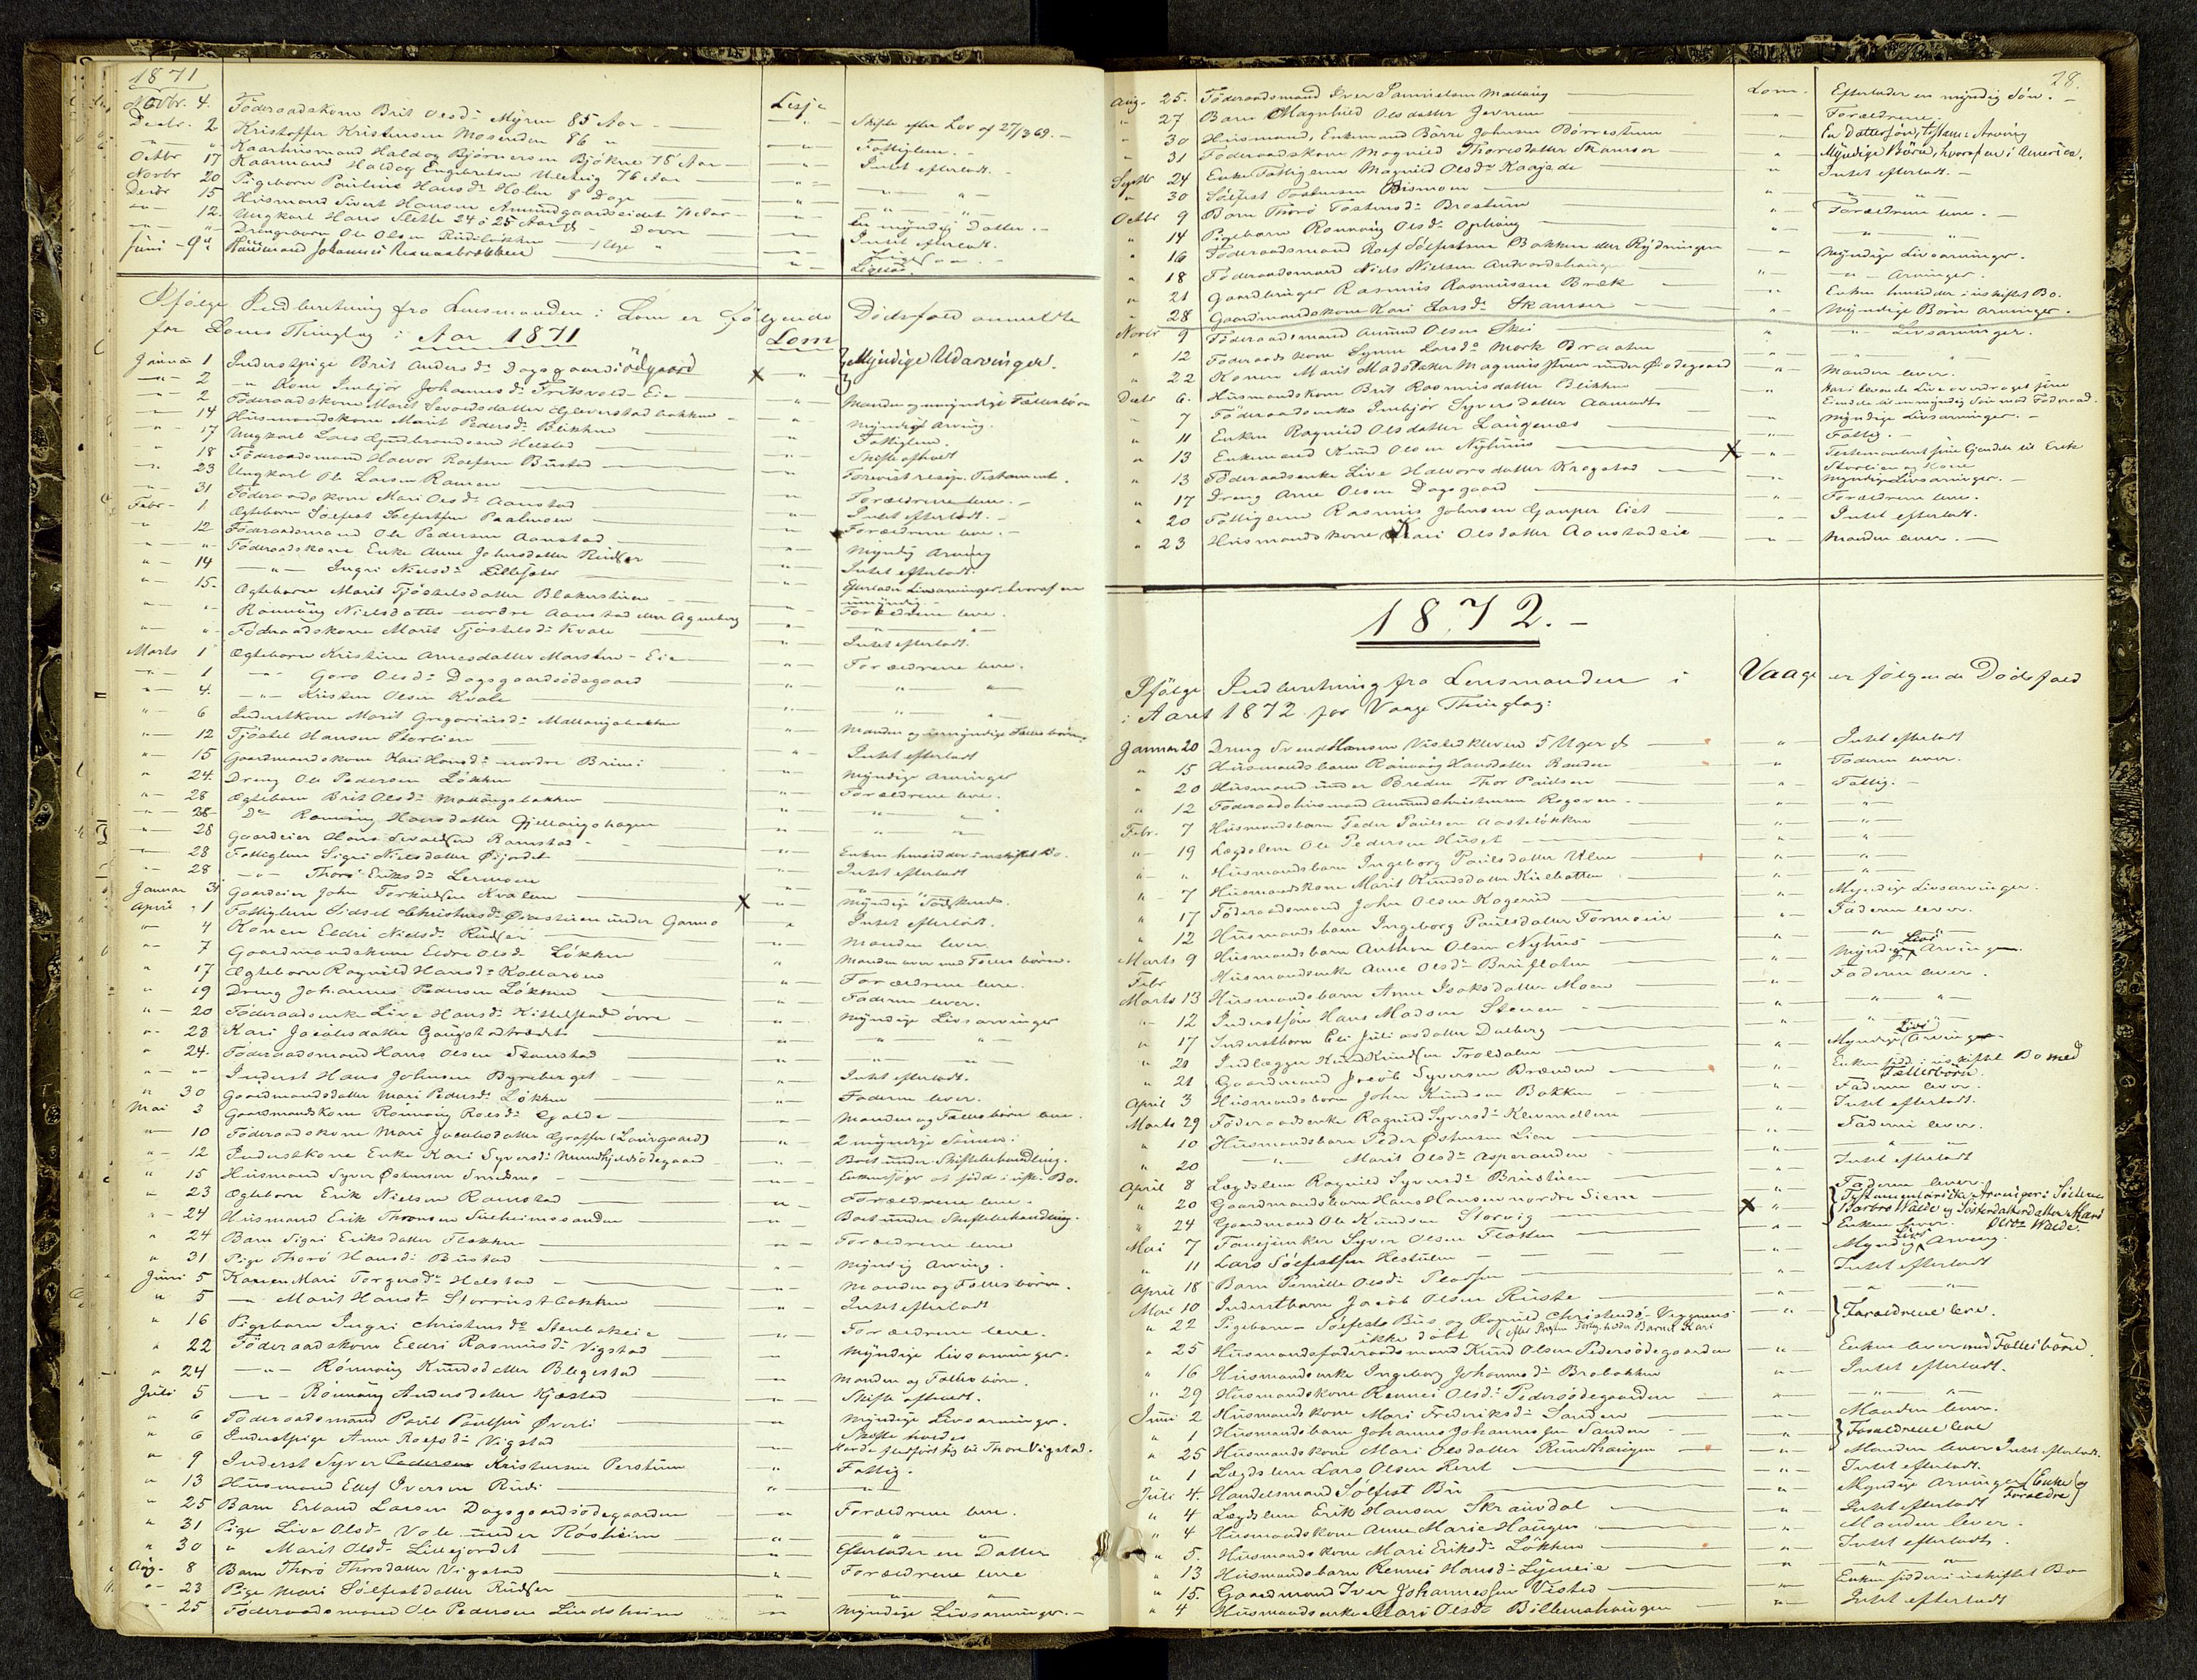 1871
Novbr. 4. Föderaadskone Brit Olsd. Myren 85 Aar — Lesje
Decbr. 2 Kristoffer Kristensen Mosenden 86 " — " — Skifte efter Lov af 27/3 69. —
" " Kaarhusmand Haldog Björnersen Bjökne 78 Aar — " — Fattiglem. —
Octbr 17 Kaarmand Haldog Engebretsen 76 Aar — " — Intet efterladt. —
Novbr 20 Pigebarn Pauline Hansd. Holen 8 Dage — " —
Decbr 15 Husmand Sivert Hansen Amundgaardseidet — " —
— " — 12. Ungkarl Hans Slette 24 à 25 Aar — Dovre — " — En myndig Datter. —
— " — " Drengebarn Ole Olsen Rudiløkken — 1 Uge " — " — Intet efterladt.
Juni — 9 Huusmand Johannes — " — Ligesaa.
Ifølge Indberetning fra Lensmanden i Lom er følgende Dødsfald anmeldte
for Loms Thinglag i Aar 1871 Lom
Januar 1 Inderstpige Brit Andersd. Dagsgaardsödegaard × " Myndige Udarvinger.
— " — 2 — " Kone Imbjør Johannesd. Fritsvold-Eie — " —
— " — 2 Föderaadskone Marit Sevaldsdatter Gjeverstadbakken — " Manden og umyndige Fællesbörn
" — 14 Husmandskone Marit Pedersd. Blikken — " Myndig Arving.
" — 17 Ungkarl Lars Gudbrandsen Helstad — " — Fattiglem.
" 18 Föderaadsmand Halvor Roelfsen Bustad — " — Skifte afholdt
" — 23 Ungkarl Ole Larsen Ramsen — " — Testament.
" — 31 Föderaadskone Mari Olsd. Aanstad — " — Forældrene leve. —
Febr — 1 Ægtebarn Sölfest Sölfestsen Prestmoen — " — Intet efterladt. —
" 12 Föderaadsmand Ole Pedersen Aanstad — " — Forældrene leve. —
" — " Föderaadskone Enke Anne Johnsdatter Rudser — " — Myndig Arving
" — 14 — " — Ingri Nielsd. — " — Intet efterladt.
" — 15. Ægtebarn Marit Tjöstelsdatter Blakerstuen — " — Efterlader Livsarvinger, hvoraf en umyndig —
" — " Rönnaug Nielsdatter nordre Aanstad eller Agneberg — " — Forældrene leve.
" — " Föderaadskone Marit Tjöstelsd. Kvale — " — " —
Marts 1 Ægtebarn Kristine Arnesdatter Marstein-Eie — " — Intet efterladt.
— " — 1 — " — Goro Olsd. Dagsgaardsödegaard — " — Forældrene leve.
" — 4. — " — Kristen Olsen Kvale — " — " —
" — 6 Inderstkone Marit Gregoriusd. Mallangsbakken — " — " —
" — 12 Tjöstel Hansen Storlien — " — Manden og umyndige Fællesbörn
" — 15 Gaardmandskone Kari Hansd. nordre Brimi — " — Intet efterladt
" 24. Dreng Ole Pedersen Lökken — " — Myndige Arvinger
" — 28 Ægtebarn Brit Olsd. Mallangsbakken — " — Forældrene leve.
" — 28 Do. Rönnaug Hansdatter Gjellaugshagen — " — " —
— " — 28 Gaardeier Hans Sevaldsen Ramstad — " — " —
" — 28 Fattiglem Sigri Nielsdatter Öifjordet — " — Enken hensidder i uskiftet Bo.
— " — 28 — " — Thore Eriksd. — " — Intet efterladt
Januar 31 Gaardeier John Torkildsen Kvalen — " — " —
April 1 Fattiglem Sidsel Christensd. under Garmo × — Myndige Sødskende.
" — 4 Konen Eldri Nielsd. Rudser — " — Intet efterladt.
" — 7 Gaardmandskone Eldri Olsd. Løkken — " — Manden lever.
" 17 Ægtebarn Ragnild Hansd. Kollaroen — " Manden lever med Fælles börn.
" 19 Dreng Johannes Pedersen Løkken — " — Forældrene leve.
" — 20 Föderaadsenke Live Hansd. Kittelstad övre — " — Faderen lever.
" — 23 Kari Jacobsdatter Gaupstadtrædet — " — Myndige Livsarvinger
" 24. Föderaadsmand Hans Olsen Stamstad — " — " —
" — " Inderst Hans Johnsen Byreberget — " — " —
" 30 Gaardmandsdatter Mari Pedersd. Løkken — " — Intet efterladt.
Mai 3 Gaardmandskone Rönnaug Roesd. Galde — " — Faderen lever.
" — 10 Föderaadskone Mari Jacobsdatter Graffer (Laurgaard) — " — Manden og Fælles börn leve.
" — 12 Inderstkone Enke Kari Syversd. — " — 2 myndige Sönner.
" 15 Husmand Syver Østensen — " — Boet under Skiftebehandling.
" 23 Ægtebarn Erik Nielsen Ramstad — " —
" — 24 Husmand Erik Thoresen Sulheimssanden — " — Forældrene leve.
" 24 Barn Sigri Eriksdatter Flækken — " — Boet under Skiftebehandling.
" 31 Pige Thorö Hansd. Bustad — " — Forældrene leve
Juni 5 Konen Mari Torgersd. Helstad — " — Myndig Arving.
" 5 — " Marit Hansd. Storrustbakken — " — Manden og Fælles börn.
" 16 Pigebarn Ingri Christensd. Stenbakeie — " — Intet efterladt
" 22 Föderaadskone Eldri Rasmusd. Vigstad — " — Forældrene leve.
" 24 — " — Rönnaug Knudsdatter Blegestad — " — Myndige Livsarvinger.
Juli 5 — " — Rönnaug Andersdatter Kjæstad — " — Manden og Fælles börn.
" 6 Föderaadsmand Poul Poulsen Øverli — " — Skifte afholdt.
" 6 Inderstpige Anne Roelfsd. Vigstad — " — Myndige Livsarvinger.
" 9 Inderst Syver Pedersen Kristensen Perstuen — " — Skifte holdes
" 13 Husmand Ellef Iversen Rudi — " — Fattig.
" 25 Barn Erland Larsen Dagsgaardsødegaarden — " — Forældrene leve.
" 31 Pige Live Olsd. Vole under Røsheim — " — " —
" 30 " Marit Olsd. Lillejordet — " — Efterlader en Datter
Aug. 8 Barn Thorö Thorsdatter Vigstad — " — Forældrene leve
" — 23 Pige Mari Sölfestdatter Rudser — " — " —
" — 25 Föderaadsmand Ole Pedersen Lindsheim — " — Myndige Livsarvinger. —
28.
Aug. 25. Föderaadsmand Iver — Lom. Efterlader en myndig Sön. —
" 27 Barn Magnhild Olsdatter Jevnem — " Forældrene.
" 30 Husmand, Enkemand Börre Johnsen Börrestuen — " En Dattersön, Testam. Arving
" 31 Föderaadskone Magnild Thoresdatter Skamsar — " Myndige Börn, hvoraf en i America.
Septbr 24 Enke Fattiglem Magnild Olsd. — " Intet efterladt. —
" 30 Sölfest Tostensen Bismoen — " " —
Octbr 9 Barn Thorö Tostensd. Brostuen — " Forældrene leve. —
" 14 Pigebarn Rönnaug Olsd. Ophaug — " " —
" 16 Föderaadsmand Roef Sölfestsen Bakken eller Rydningen — " Myndige Livsarvinger.
" 18 Föderaadsmand Niels Nielsen Andvordshaugen — " — Arvinger.
" 21 Gaardbruger Rasmus Rasmussen Bræk — " Enken hensidder i uskiftet Bo.
" 28 Gaardmandskone Kari Larsd. Skamsar — " Myndige Börn Arvinger.
Novbr 9 Föderaadsmand Amund Olsen Skei — " — Livsarvinger.
" 12 Föderaadskone Synne Larsd. Mork Braaten — " — " —
" 22 Konen Marit Madsdatter under Øiødegaard — " Manden lever.
Decbr 6. Husmandskone Brit Rasmusdatter Blikken — "
" 7 Föderaadsenke Imbjør Syversdatter Aamodt — " Myndige Livsarvinger. —
" 11 Enken Ragnild Olsdatter Laugenæs — " Fattig. —
" 13 Enkemand Knud Olsen Nyhuus × — " Testamenteret sine Eiendele til Erik Storlien og Kone
" 13 Föderaadsenke Live Halvorsdatter Krogstad — " Myndige Livsarvinger. —
" 17 Dreng Arne Olsen Dagsgaard — " Forældrene leve.
" 20 Fattiglem Rasmus Johnsen Gauper Eiet — " — Intet efterladt.
" 23 Husmandskone Kari Olsdatter Aanstadeie — " — Manden lever. —
1872. —
Ifølge Indberetning fra Lensmanden i Vaage er følgende Dødsfald
i Aaret 1872 for Vaage Thinglag:
Januar 20 Dreng Svend Hansen Vistekleven 5 Uger gl. — " Intet efterladt
" 15 Husmandsbarn Rönnaug Hansdatter Randen — " Faderen lever.
" 20 Husmand under Bræden Thor Paulsen — " — Fattig. —
" 12 Föderaadshusmand Amund Christensen — " — " —
Febr. 7 Husmandsbarn Peder Paulsen Aasteløkken — " " —
" — 19 Lægdslem Ole Pedersen Huset — " " —
" — " Husmandsbarn Ingeborg Paulsdatter Ulen — " " —
" — 7 Husmandskone Marit Knudsdatter — " Myndige Livsarvinger.
" 17 Föderaadsmand John Olsen Kogerud — " Faderen lever.
" 12 Husmandsbarn Ingeborg Paulsdatter Formoeie — " " —
Marts 9 Husmandsbarn Anthon Olsen Nyhus — " Myndige Livs Arvinger
Febr Husmandsenke Anne Olsd. Bruflaten — " Faderen lever.
Marts 13 Husmandsbarn Anne Isaksdatter Moen — " " —
" — 12 Inderstsön Hans Madsen Stenen — " " —
" 17 Inderstbarn Eli Juliusdatter Dalberg — " Myndige Livs Arvinger
" 21 Indlægger Knud Knudsen Troldalen — " Enken sidder i uskiftet Bo med Fællesbörn.
" 21 Gaardmand Jacob Syversen Brænden — " Faderen lever.
April 3 Husmandsbarn John Knudsen Bakken — " Intet efterladt.
Marts 29 Föderaadsenke Ragnild Syversd. — " Faderen lever.
" 10 Husmandsbarn Peder Østensen Lien — " — " —
" 20 — " — Marit Olsd. Asperanden — " — Intet efterladt
April 8 Lægdslem Ragnild Syversd. Brustuen — " — Faderen lever.
" 20 Gaardmandsbarn Hans Hansen nordre Siem × " Testamentariske Arvinger: Barbro Walde og Søsterdatterdatter Mari Olsd. Walde.
" 24 Gaardmand Ole Knudsen Storvig — " — Enken lever.
Mai 7 Fanejunker Syver Olsen Flatten — " — Myndig Livs Arving.
" 11 Lars Sölfestsen Hestulen — " — Intet efterladt
April 18 Barn Pernille Olsd. — " — " —
Mai 10 Inderstbarn Jacob Olsen Ruste — " — Forældrene leve.
" 22 Pigebarn — Sölfests Bus og Ragnild Christensd. Veggums
ikke döbt (efter Barnet Kari
" 25 Husmandsföderaadsmand Knud Olsen Pedersødegaarden — " — Enken lever med Fællesbörn.
" 16 Husmandsenke Ingeborg Johannesd. Brobakken — " — Intet efterladt.
" 29 Husmandskone Rennei Olsd. Pedersødegaarden — " — " —
Juni 2 Husmandskone Mari Frederiksd. Sanden — " — Manden lever.
" 1 Husmandsbarn Johannes Johannessen Sanden — " — Forældrene leve
" 25 Husmandskone Mari Olsdatter Rundhaugen — " — Manden lever Intet efterladt.
" 1 Lægdslem Lars Olsen — " — Intet efterladt.
Juli 4. Handelsmand Sölfest Bu — " — Myndige Arvinger (Enke og Foreldre)
" 4 Lægdslem Erik Hansen Skrautdal — " — Intet efterladt
" 4 Husmandskone Anne Marie Haugen — " — Manden lever.
" 5. Husmandskone Mari Eriksd. Løkken — " — Intet efterladt.
" 13 Husmandsbarn Rennei Hansd. — " — " —
" 15. Gaardmand Iver Johannessen Visted — " — Enken sidder i uskiftet Bo
" 4 Husmandsenke Mari Olsd. Billemshaugen — " — Intet efterladt